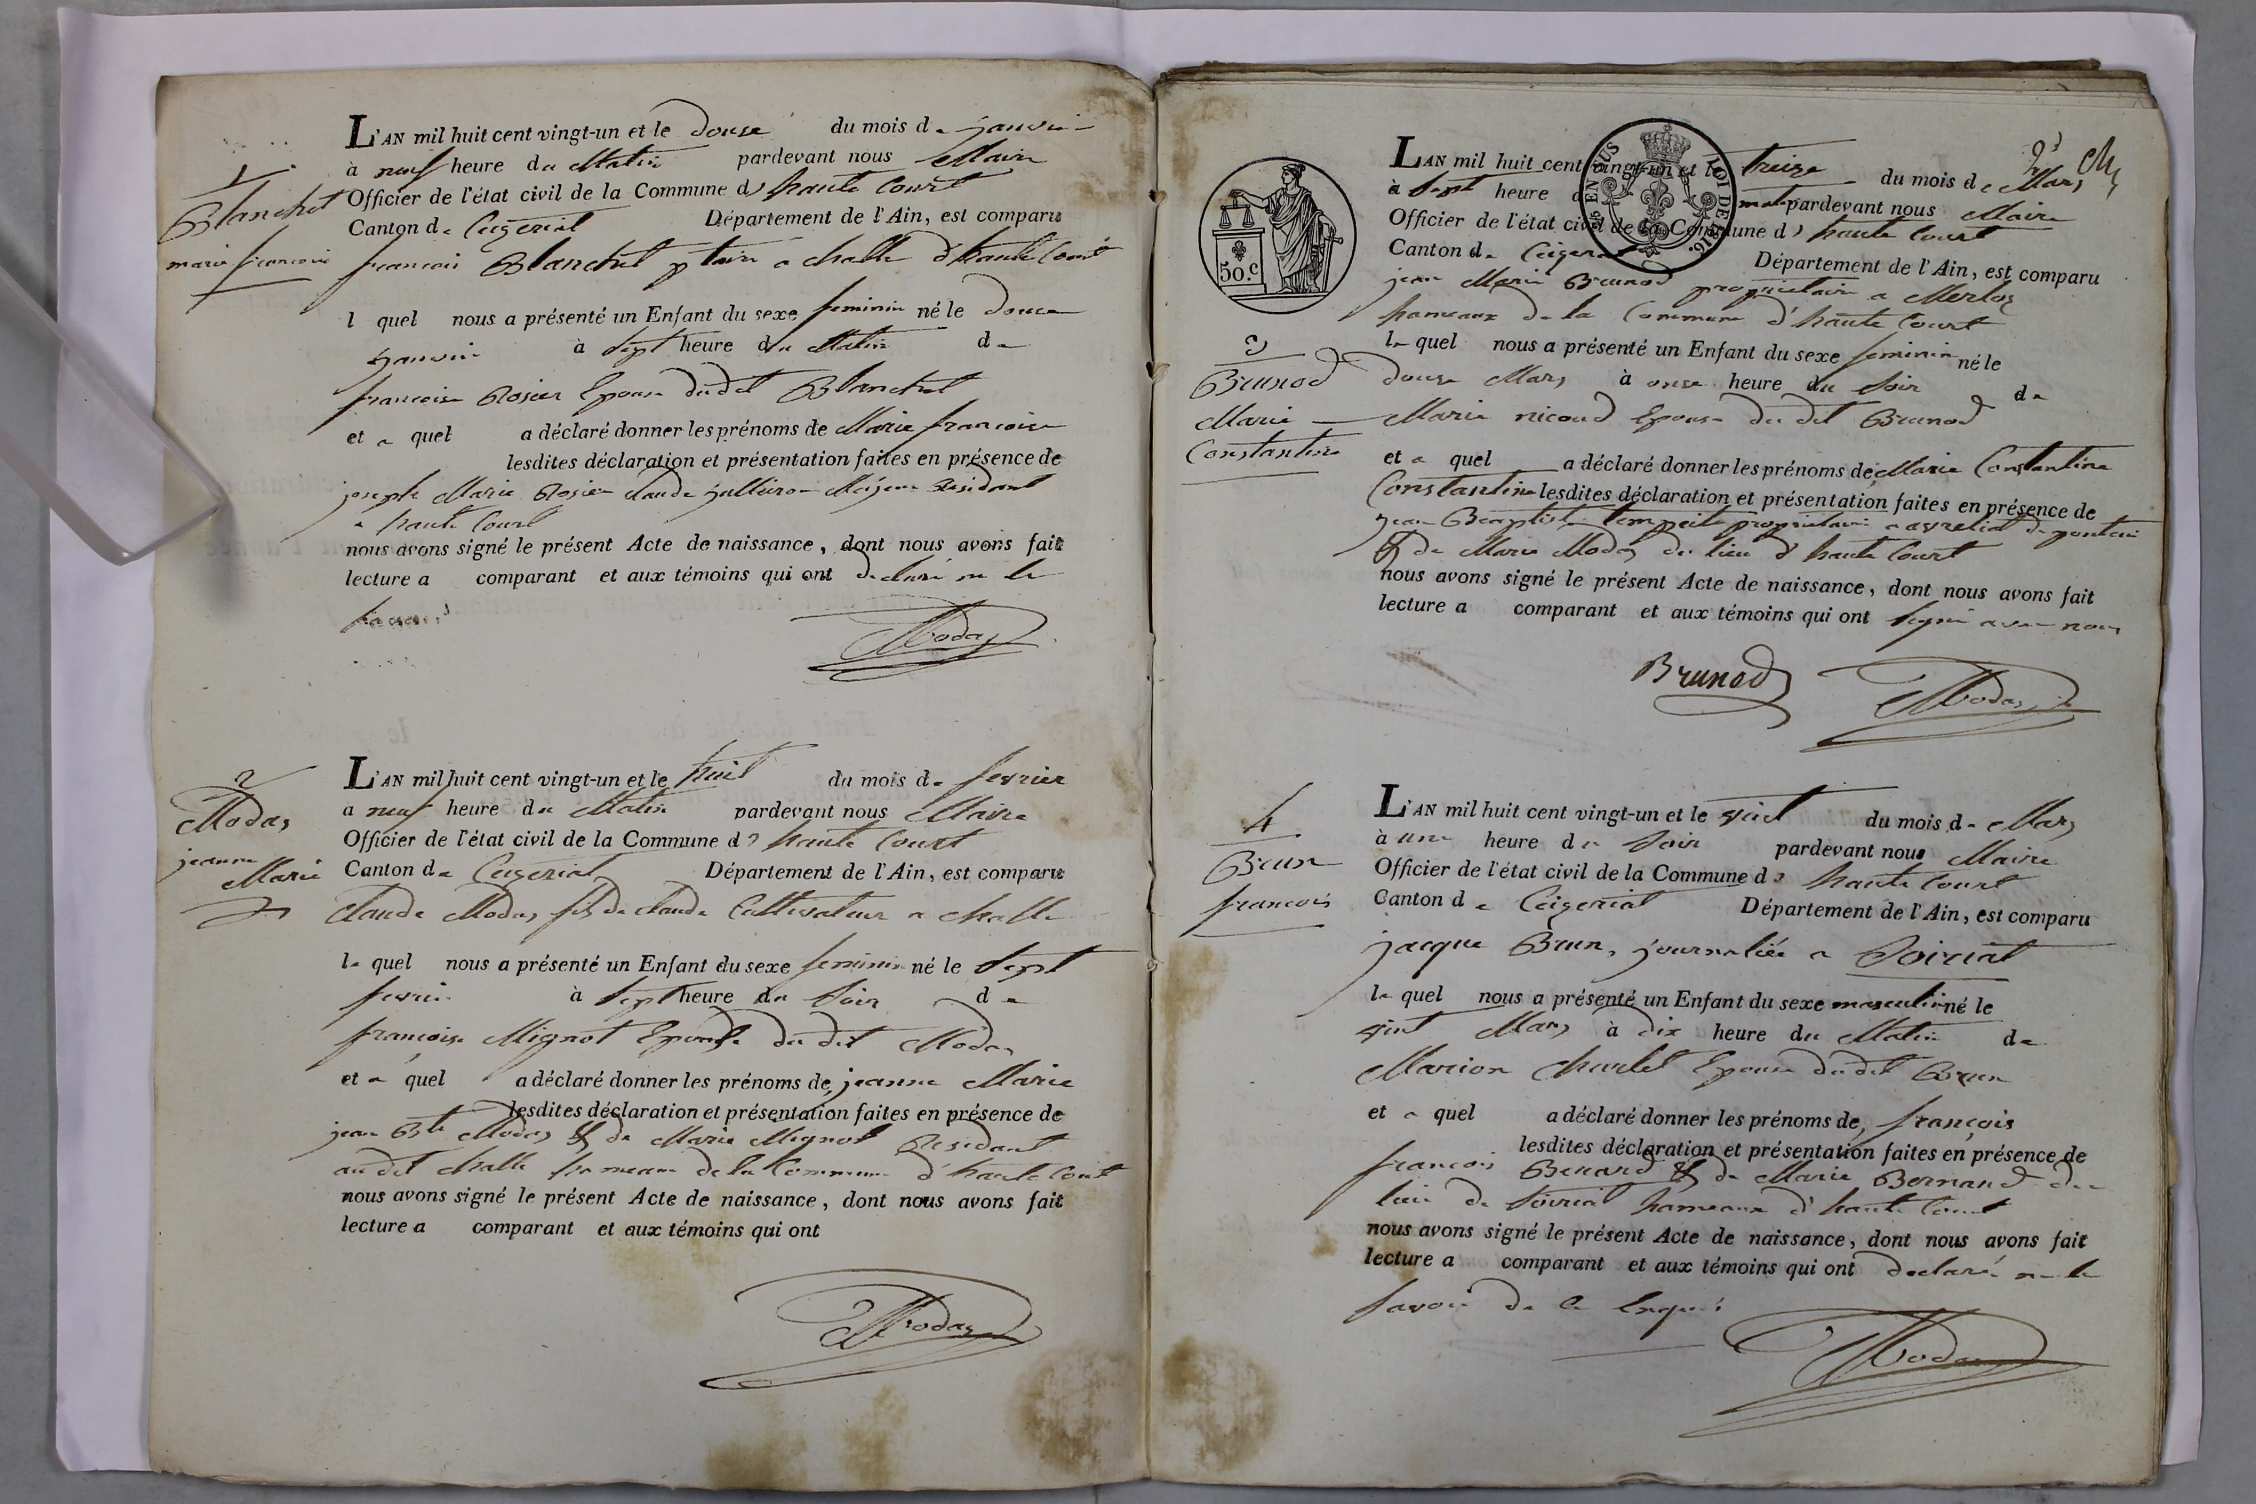 1
Blanchet
marie francoise
L'AN mil huit cent vingt-un et le douse du mois de janvier
à neuf heure du Matin pardevant nous Maire
Officier de l'état civil de la Commune d' haute Court
Canton de Ceyzeriat Département de l'Ain, est comparu
francois Blanchet ptaire a challe d'haute Court
l quel nous a présenté un Enfant du sexe feminin né le douse
janvier à sept heure du Matin de
francoise Rosier Epouse dudit Blanchet
et a quel a déclaré donner les prénoms de Marie francoise
lesdites déclaration et présentation faites en présence de
joseph Marie Rosier claude Majeur Residant
a haute Court
nous avons signé le présent Acte de naissance, dont nous avons fait
lecture a comparant et aux témoins qui ont declaré ne le
savoir
Modas
2
Modas
jeanne
Marie
L'AN mil huit cent vingt-un et le huit du mois de fevrier
a neuf heure du Matin pardevant nous Maire
Officier de l'état civil de la Commune d' haute Court
Canton de Ceyzeriat Département de l'Ain, est comparu
Claude Modas fils de claude Cultivateur a challe
le quel nous a présenté un Enfant du sexe feminin né le sept
fevrier à sept heure du soir de
francoise Mignot Epouse du dit Modas
et a quel a déclaré donner les prénoms de jeanne Marie
lesdites déclaration et présentation faites en présence de
jean Bte Modas & de Marie Mignot Residant
au dit challe hameau de la Commune d'haute Court
nous avons signé le présent Acte de naissance, dont nous avons fait
lecture a comparant et aux témoins qui ont
Modas
50.c
EN SUS
LOI DE 1816.
3
Brunod
Marie
Constantine
L'AN mil huit cent vingt-un et le treize du mois de Mars
à sept heure d matin pardevant nous Maire
Officier de l'état civil de la Commune d' haute Court
Canton de Ceyzeriat Département de l'Ain, est comparu
jean Marie Brunod proprietaire a Merloz
hameaux de la Commune d'haute Court
le quel nous a présenté un Enfant du sexe feminin né le
douse Mars à onse heure du soir de
Marie nicoud Epouse du dit Brunod
et a quel a déclaré donner les prénoms de Marie Constantine
Constantine lesdites déclaration et présentation faites en présence de
jean Baptiste proprietaire a
& de Marie Modas du lieu d'haute Court
nous avons signé le présent Acte de naissance, dont nous avons fait
lecture a comparant et aux témoins qui ont signé avec nous
Brunod Modas
4
Brun
francois
L'AN mil huit cent vingt-un et le vint du mois de Mars
à une heure du soir pardevant nous Maire
Officier de l'état civil de la Commune d' haute Court
Canton de Ceyzeriat Département de l'Ain, est comparu
jacque Brun, journaliée a Soiriat
le quel nous a présenté un Enfant du sexe masculin né le
vint Mars à dix heure du Matin de
Marion charlet Epouse dudit Brun
et a quel a déclaré donner les prénoms de francois
lesdites déclaration et présentation faites en présence de
francois Benard & de Marie Bernand du
lieu de Soiriat hameaux d'haute Court
nous avons signé le présent Acte de naissance, dont nous avons fait
lecture a comparant et aux témoins qui ont declaré ne le
savoir de ce Enquis
Modas